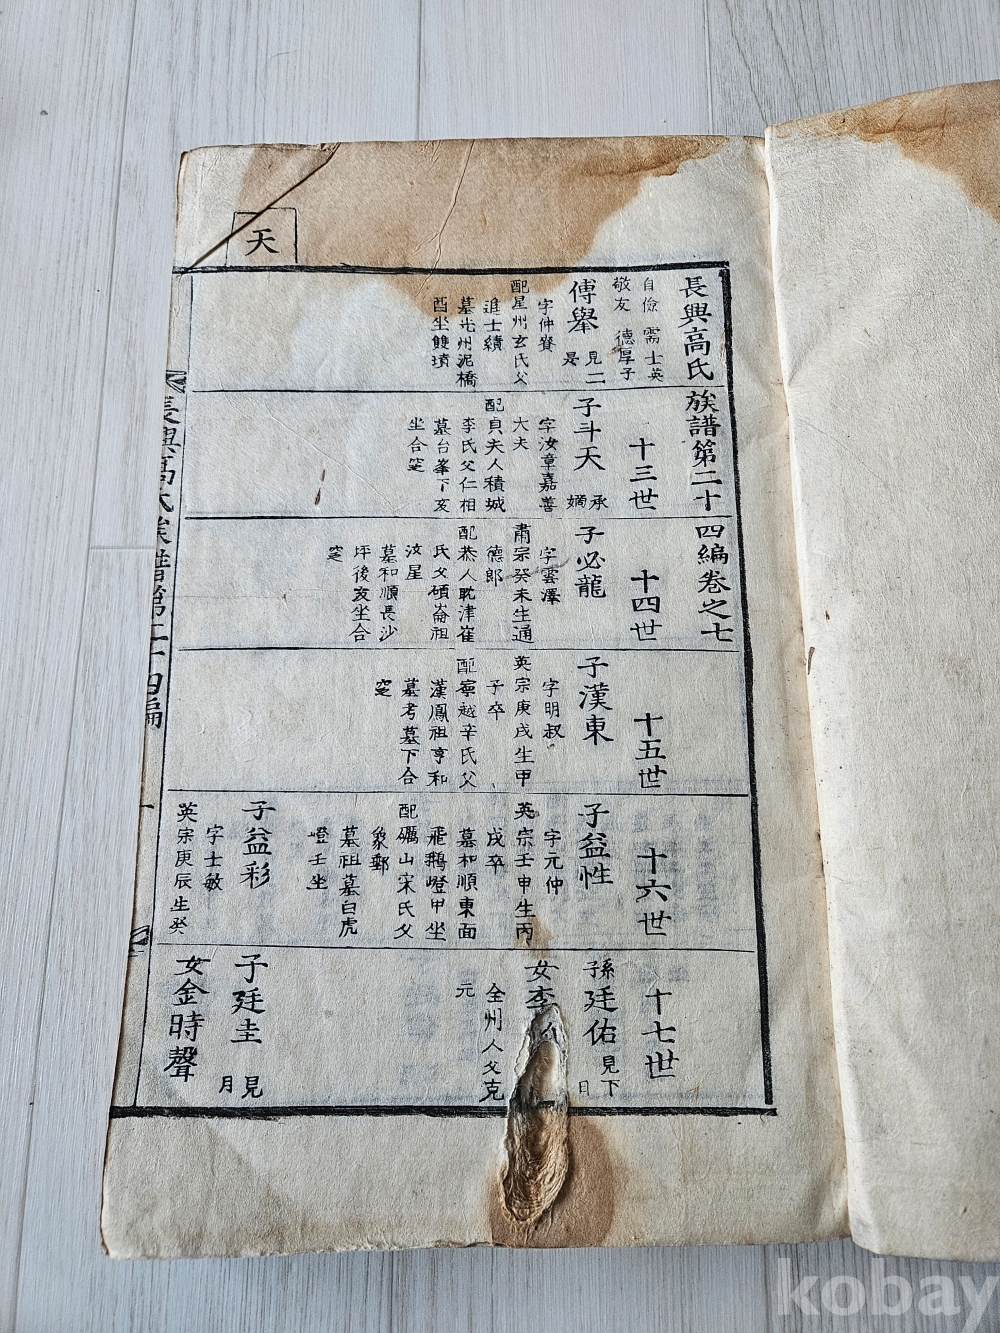 天
長興高氏族譜第二十四編卷之七
自儉 需 士英
敬友 德厚子
傅舉 見二
是
字仲賚
配星州玄氏父
進士績
墓光州泥橋
酉坐雙墳
十三世
子斗天 承
嫡
字汝章嘉善
大夫
配貞夫人積城
李氏父仁相
墓台峯下亥
坐合窆
十四世
子必龍
字雲澤
肅宗癸未生通
德郎
配恭人耽津崔
氏父碩崙祖
汝星
墓和順長沙
坪後亥坐合
窆
十五世
子漢東
字明叔
英宗庚戌生甲
子卒
配寧越辛氏父
漢鳳祖亨和
墓考墓下合
窆
十六世
子益性
字元仲
英宗壬申生丙
戌卒
墓和順東面
飛鵝嶝甲坐
配礪山宋氏父
象郵
墓祖墓白虎
嶝壬坐
子益彩
字士敏
英宗庚辰生癸
十七世
孫
子廷佑 見下
日
女李
全州人父克
元
子廷圭 見
月
女金時聲
長興高氏族譜第二十四編
一
kobay